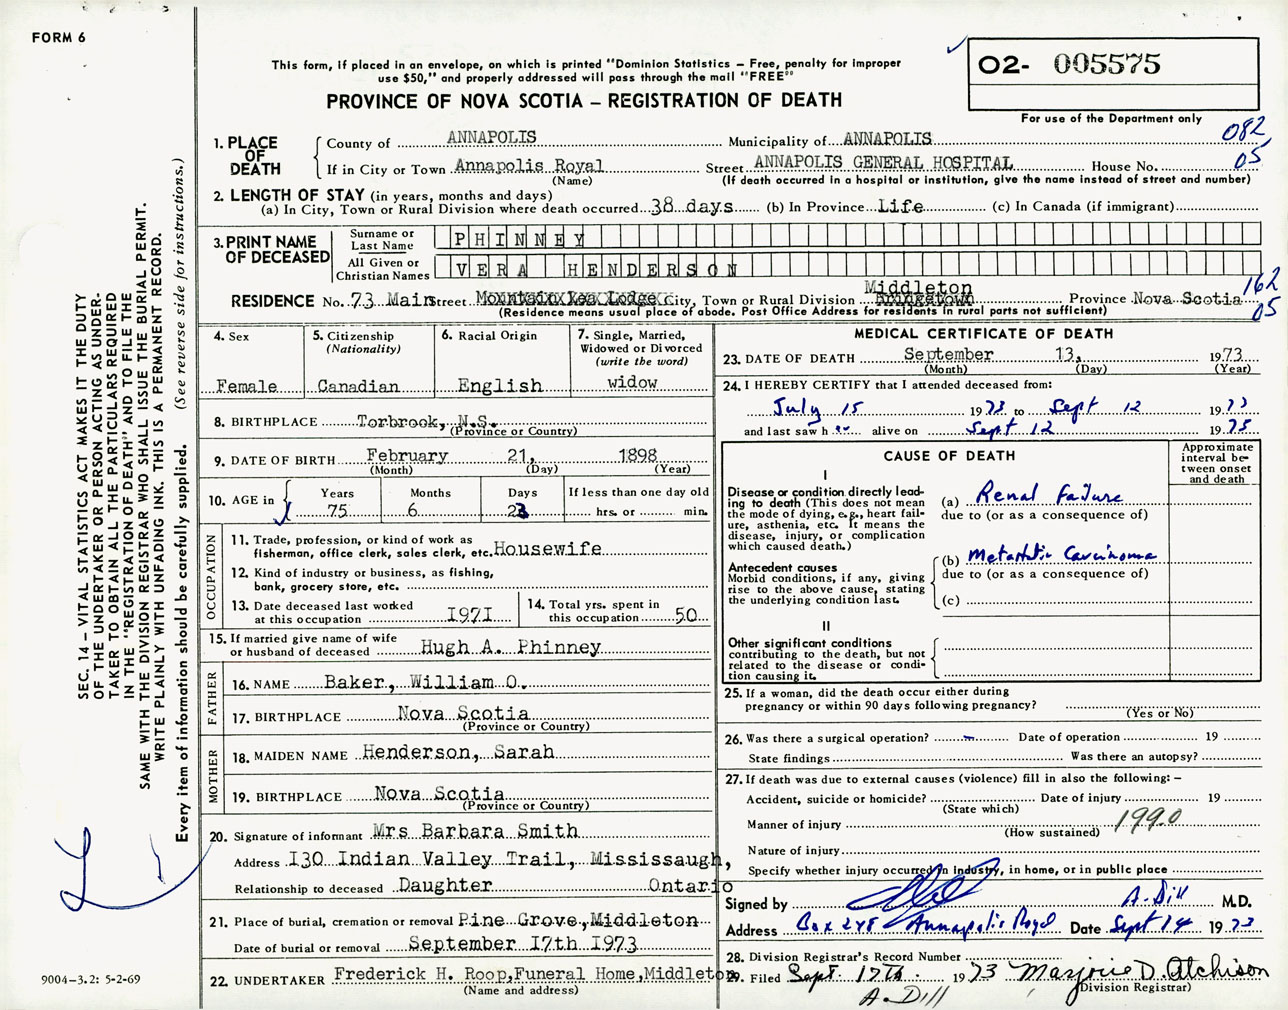 FORM 6
This form, if placed in an envelope, on which is printed "Dominion Statistics – Free, penalty for improper
use $50," and properly addressed will pass through the mail "FREE"
O2- 005575
PROVINCE OF NOVA SCOTIA – REGISTRATION OF DEATH
For use of the Department only
082
05
1. PLACE OF DEATH
County of ANNAPOLIS Municipality of ANNAPOLIS
If in City or Town Annapolis Royal Street ANNAPOLIS GENERAL HOSPITAL House No.
(Name) (If death occurred in a hospital or institution, give the name instead of street and number)
2. LENGTH OF STAY (in years, months and days)
(a) In City, Town or Rural Division where death occurred 38 days (b) In Province Life (c) In Canada (if immigrant)
3. PRINT NAME OF DECEASED
Surname or Last Name PHINNEY
All Given or Christian Names VERA HENDERSON
162
05
RESIDENCE No. 73 Main Street Mountain Lea Lodge City, Town or Rural Division Middleton Bridgetown Province Nova Scotia
(Residence means usual place of abode. Post Office Address for residents in rural parts not sufficient)
4. Sex
Female
5. Citizenship
(Nationality)
Canadian
6. Racial Origin
English
7. Single, Married,
Widowed or Divorced
(write the word)
widow
8. BIRTHPLACE Torbrook, N.S.
(Province or Country)
9. DATE OF BIRTH February 21, 1898
(Month) (Day) (Year)
10. AGE in
Years Months Days If less than one day old
75 6 23 hrs. or min.
OCCUPATION
11. Trade, profession, or kind of work as
fisherman, office clerk, sales clerk, etc. Housewife
12. Kind of industry or business, as fishing,
bank, grocery store, etc.
13. Date deceased last worked
at this occupation I97I
14. Total yrs. spent in
this occupation 50
15. If married give name of wife
or husband of deceased Hugh A. Phinney
FATHER
16. NAME Baker, William O.
17. BIRTHPLACE Nova Scotia
(Province or Country)
MOTHER
18. MAIDEN NAME Henderson, Sarah
19. BIRTHPLACE Nova Scotia
(Province or Country)
20. Signature of informant Mrs Barbara Smith
Address I30 Indian Valley Trail, Mississaugh,
Relationship to deceased Daughter Ontario
21. Place of burial, cremation or removal Pine Grove, Middleton
Date of burial or removal September I7th I973
22. UNDERTAKER Frederick H. Roop, Funeral Home, Middleton
(Name and address)
MEDICAL CERTIFICATE OF DEATH
23. DATE OF DEATH September 13, 1973
(Month) (Day) (Year)
24. I HEREBY CERTIFY that I attended deceased from:
July 15 1973 to Sept 12 1973
and last saw her alive on Sept 12 1973
CAUSE OF DEATH
Approximate
interval be-
tween onset
and death
I
Disease or condition directly lead-
ing to death (This does not mean
the mode of dying, e.g., heart fail-
ure, asthenia, etc. It means the
disease, injury, or complication
which caused death.)
(a) Renal Failure
due to (or as a consequence of)
Antecedent causes
Morbid conditions, if any, giving
rise to the above cause, stating
the underlying condition last.
(b) Metastatic Carcinoma
due to (or as a consequence of)
(c)
II
Other significant conditions
contributing to the death, but not
related to the disease or condi-
tion causing it.
25. If a woman, did the death occur either during
pregnancy or within 90 days following pregnancy?
(Yes or No)
26. Was there a surgical operation? Date of operation 19
State findings Was there an autopsy?
27. If death was due to external causes (violence) fill in also the following: –
Accident, suicide or homicide? Date of injury 19
(State which)
Manner of injury 1990
(How sustained)
Nature of injury
Specify whether injury occurred in industry, in home, or in public place
Signed by A. Dill M.D.
Address Box 248 Annapolis Royal Date Sept 14 1973
28. Division Registrar's Record Number
29. Filed Sept. 17th. 1973 Marjorie D. Atchison
Division Registrar)
A. Dill
SEC. 14 – VITAL STATISTICS ACT MAKES IT THE DUTY
OF THE UNDERTAKER OR PERSON ACTING AS UNDER-
TAKER TO OBTAIN ALL THE PARTICULARS REQUIRED
IN THE "REGISTRATION OF DEATH" AND TO FILE THE
SAME WITH THE DIVISION REGISTRAR WHO SHALL ISSUE THE BURIAL PERMIT.
WRITE PLAINLY WITH UNFADING INK. THIS IS A PERMANENT RECORD.
Every item of information should be carefully supplied. (See reverse side for instructions.)
9004-3.2: 5-2-69